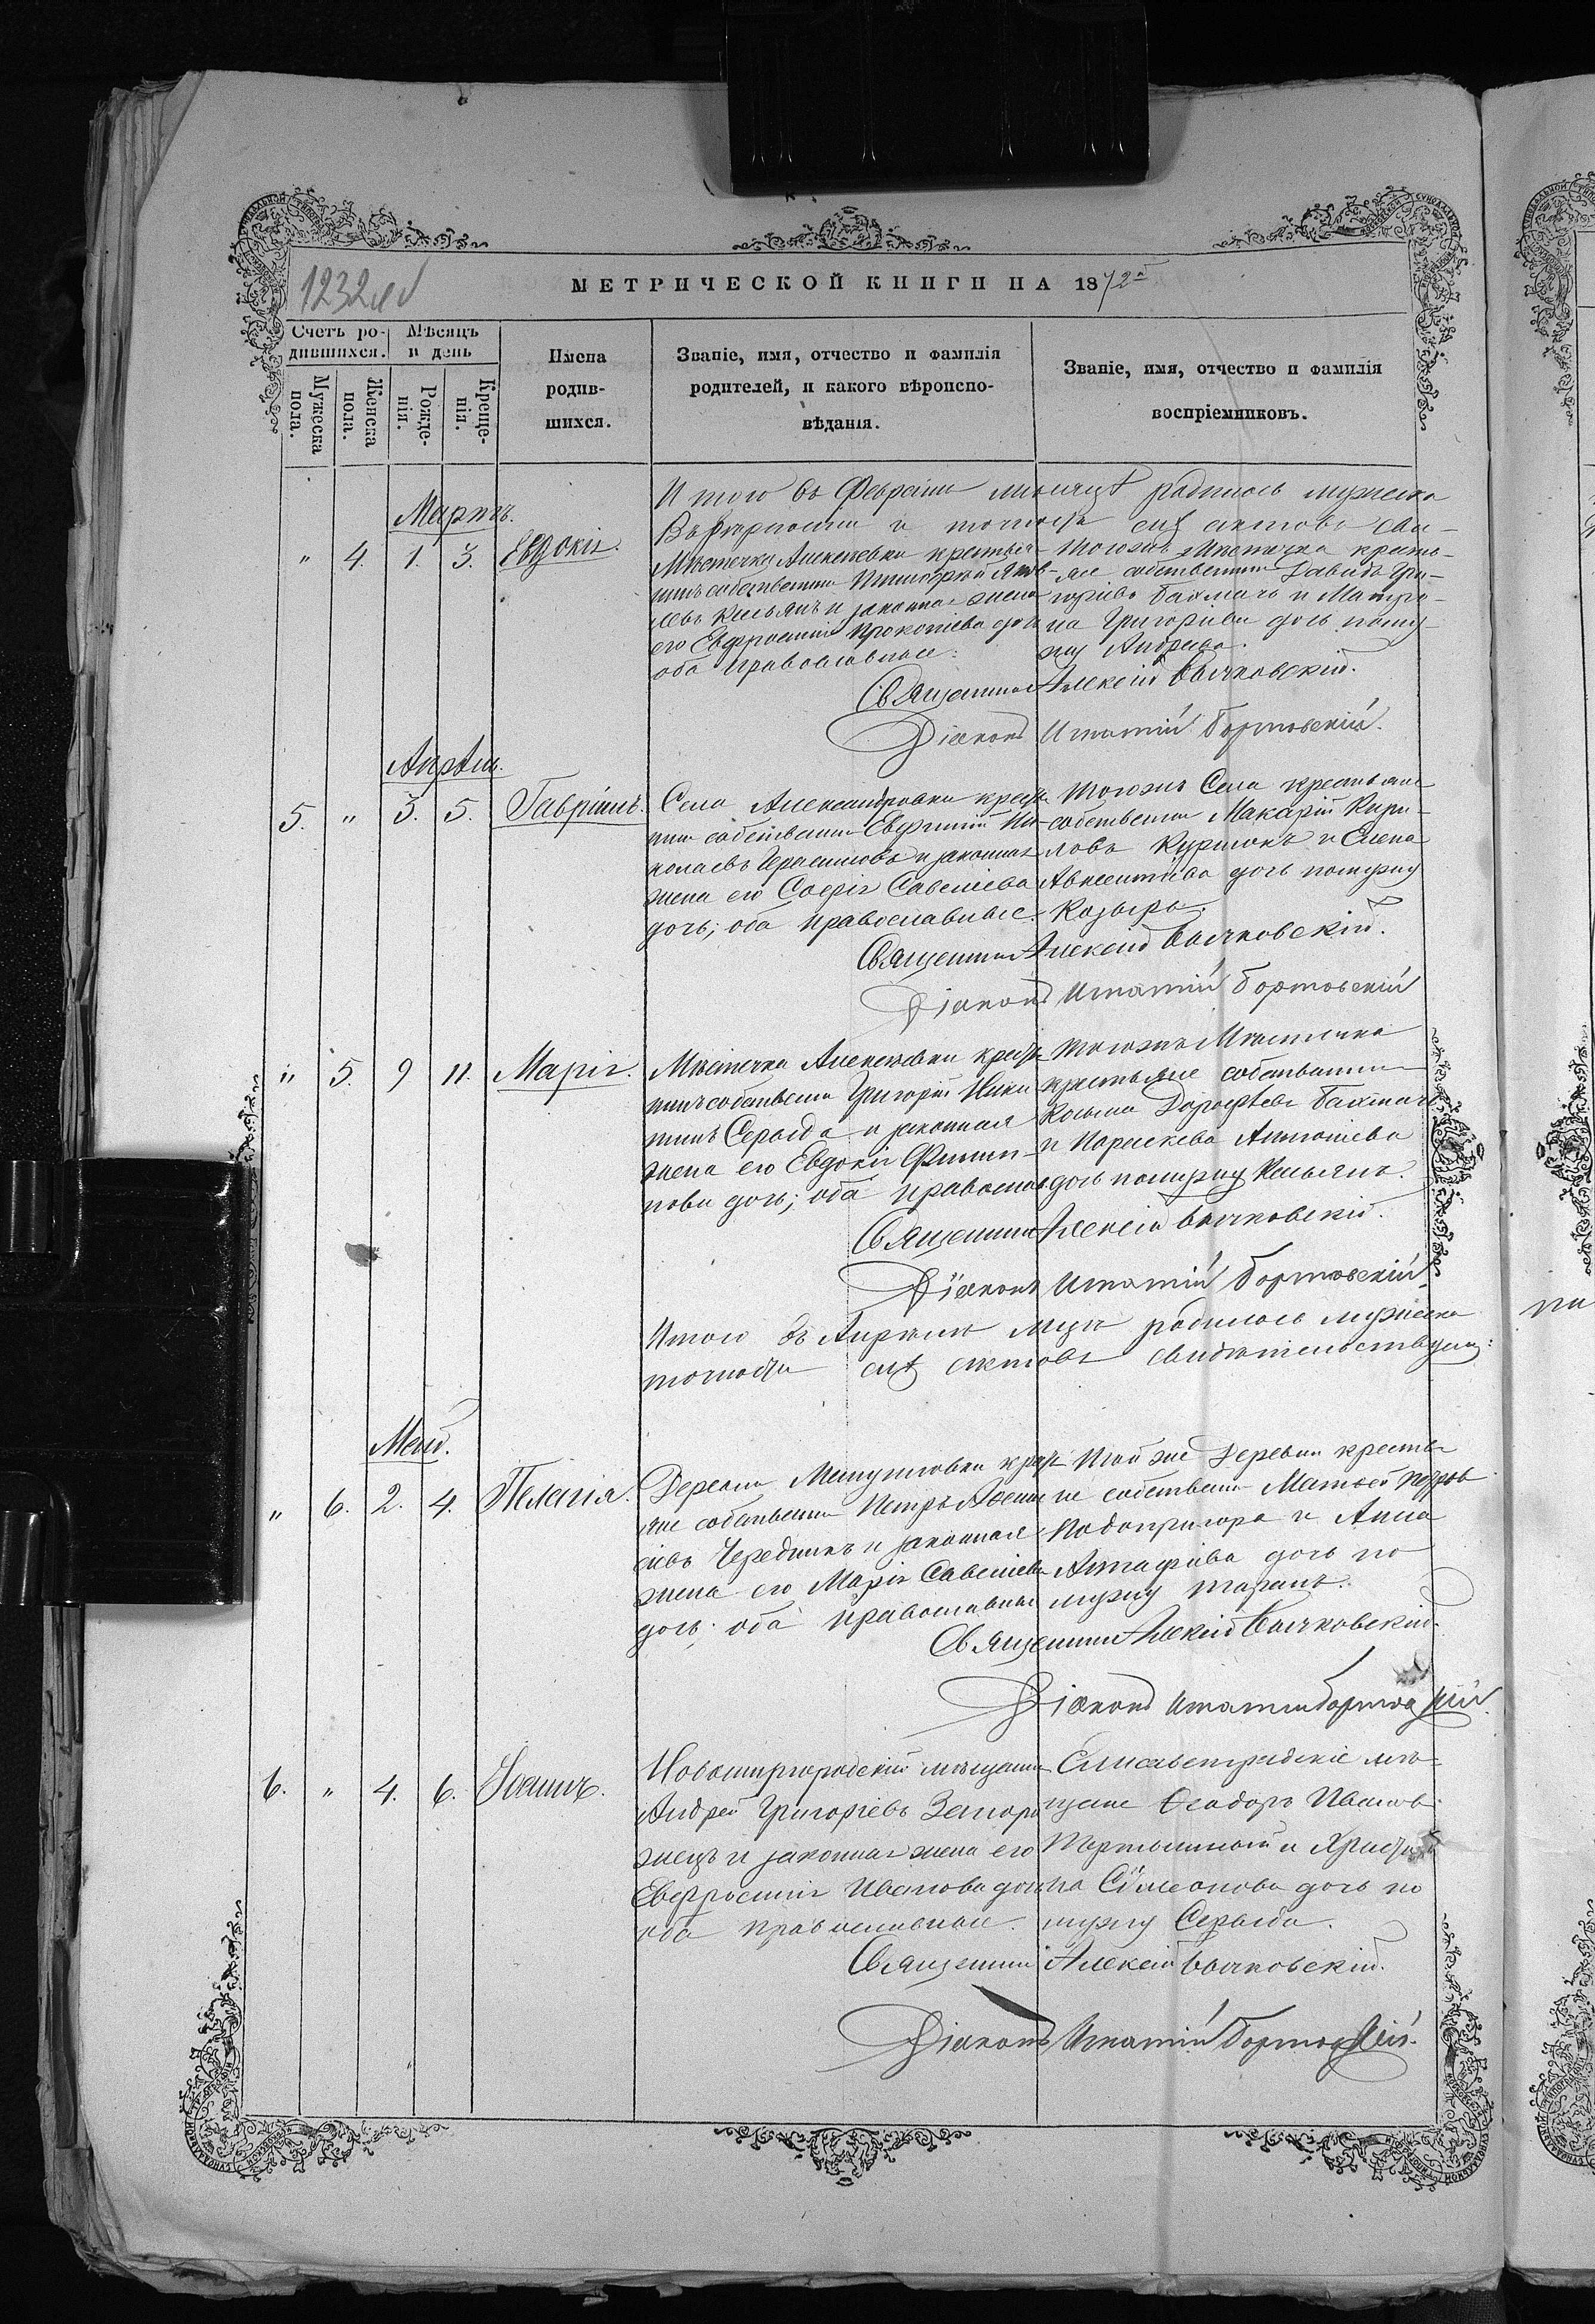 МЕТРИЧЕСКОЙ КНИГИ НА 1872
Счетъ ро-
дившихся.
Мѣсяцъ
и день
Мужеска
пола.
Женска
пола.
Рожде-
нія.
Креще-
нія.
Имена
родив-
шихся.
Званіе, имя, отчество и фамилія
родителей, и какого вѣроиспо-
вѣданія.
Званіе, имя, отчество и фамилія
воспріемниковъ.
Итого въ Февралѣ родилось мужеска
Мартъ.
" 4. 1. 3. Евдокія.
Мѣстечка Алексѣевки крестья-
нинъ собственникъ Яков-
левъ Касьянъ и законная жена
его Евфросинія Прокопіева дочь
оба православные.
Тогожъ Мѣстечка крестья-
не собственники Давидъ Гри-
горіевъ Бахмачъ и Матро-
на Григоріева дочь по му-
жу
Священникъ Алексій Бычковскій.
Діаконъ Игнатій Бортовскій.
Апрѣль.
5. " 3. 5. Гавріилъ.
Села Александровки крестья-
нинъ собственникъ Евфимій Ни-
колаевъ Герасимовъ и законная
жена его Софія Савеліева
дочь; оба православные.
Тогожъ Села крестьяне
собственники Макарій Кири-
ловъ и Елена
Авксентіева дочь по мужу
Козыра.
Священникъ Алексій Бычковскій.
Діаконъ Игнатій Бортовскій
" 5. 9 11. Марія.
Мѣстечка Алексѣевки крестья-
нинъ собственникъ Григорій Ники-
тинъ Середа и законная
жена его Евдокія Филип-
пова дочь; оба православ.
Тогожъ Мѣстечка
крестьяне собственники
Косьма Дорофѣевъ Бахмачъ
и Параскева Антоніева
дочь по мужу Касьянъ.
Священникъ Алексій Бычковскій.
Діаконъ Игнатій Бортовскій
Итого въ Апрѣлѣ мцѣ родилось мужеска
точности сихъ актовъ свидѣтельствуемъ:
Май.
" 6. 2. 4. Пелагія.
Деревни крестья-
не собственники Петръ
Чередникъ и законная
жена его Марія Савеліева
дочь; оба православные
Той же Деревни крестья-
не собственники Матѳей Петров
Подопригора и Анна
дочь по
мужу Таранъ.
Священникъ Алексій Бычковскій.
Діаконъ Игнатій Бортовскій.
6. " 4. 6. Іоаннъ.
Новомиргородскій мѣщанинъ
Андрей Григоріевъ Запоро-
жецъ и законная жена его
Евфросинія Иванова дочь
оба православные.
Елисаветградскіе мѣ-
щане Ѳеодоръ Ивановъ
и Христи-
на Сѵмеонова дочь по
мужу Середа.
Священникъ Алексій Бычковскій.
Діаконъ Игнатій Бортовскій.